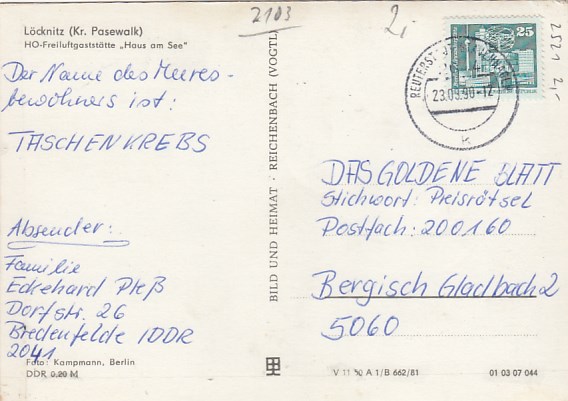 2103
2,-
2521 2,-
Löcknitz (Kr. Pasewalk)
HO-Freiluftgaststätte „Haus am See"
Der Name des Meeres-
bewohners ist:
TASCHENKREBS
Absender:
Familie
Eckehard Pleß
Dorfstr. 26
Bredenfelde DDR
2041
Foto: Kampmann, Berlin
DDR 0,20 M
BILD UND HEIMAT · REICHENBACH (VOGTL)
25
23.09.90-12
DAS GOLDENE BLATT
Stichwort: Preisrätsel
Postfach: 200160
Bergisch Gladbach 2
5060
V 11 50 A 1/B 662/81
01 03 07 044